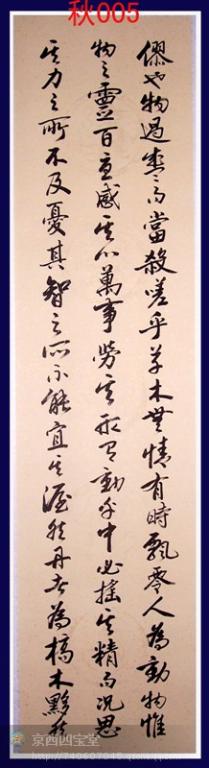 秋005
僇也物過盛而當殺嗟乎草木無情有時飄零人為動物惟
物之靈百憂感其心萬事勞其形有動乎中必搖其精而況思
其力之所不及憂其智之所不能宜其渥然丹者為槁木黟然
京西四宝堂